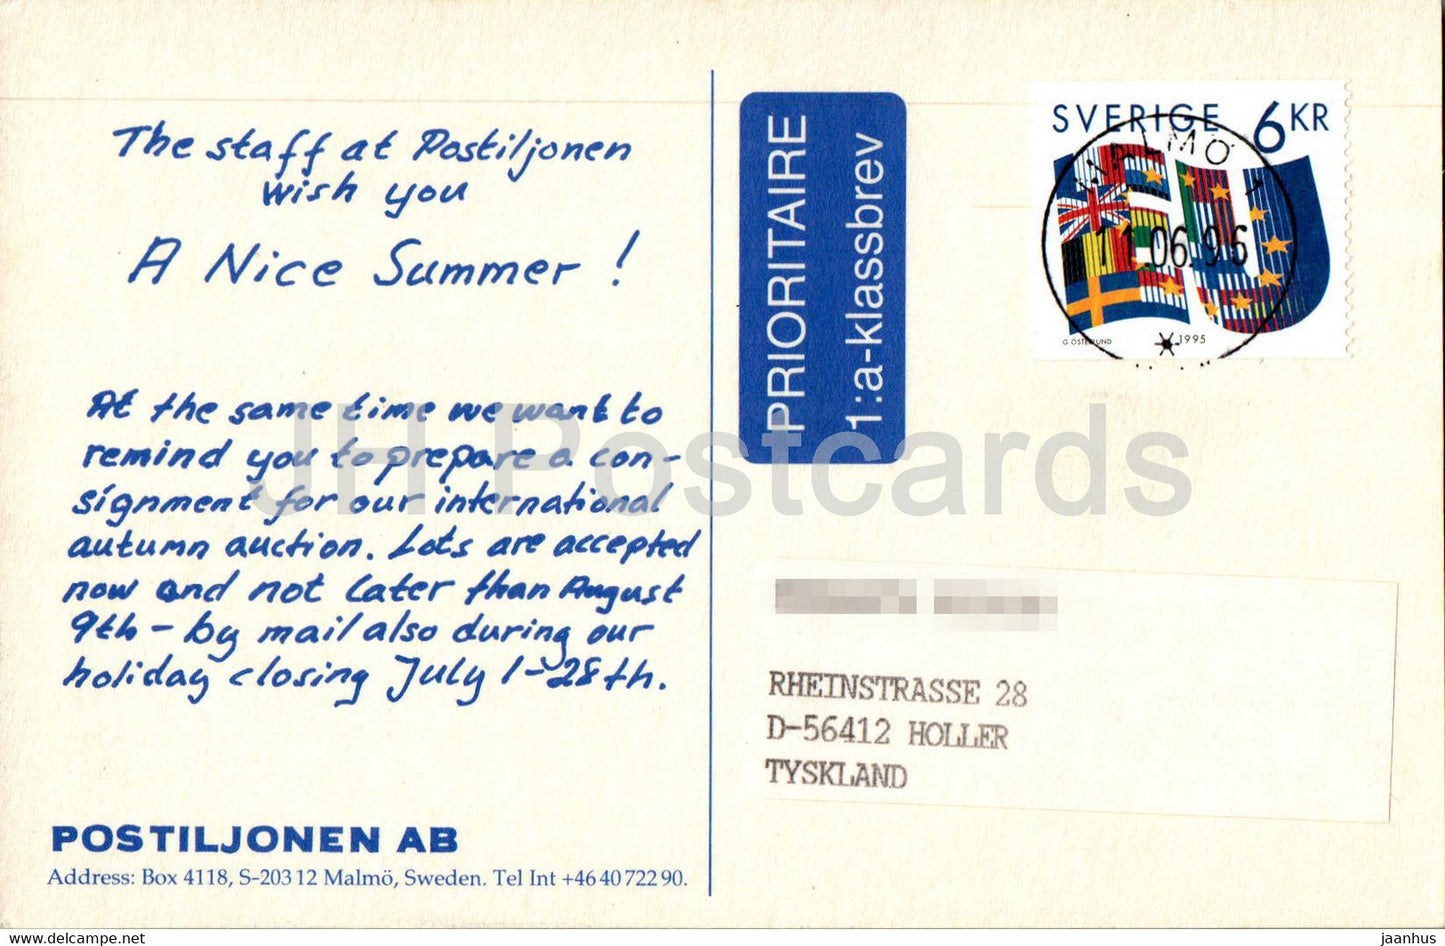 The staff at Postiljonen
wish you
A Nice Summer!
At the same time we want to
remind you to prepare a con-
signment for our international
autumn auction. Lots are accepted
now and not later than August
9th - by mail also during our
holiday closing July 1-28th.
POSTILJONEN AB
Address: Box 4118, S-203 12 Malmö, Sweden. Tel Int +46 40 722 90.
PRIORITAIRE
1:a-klassbrev
SVERIGE 6KR
MALMÖ 1
11.06.96
G ÖSTERLUND 1995
JH Postcards
RHEINSTRASSE 28
D-56412 HOLLER
TYSKLAND
www.delcampe.net
jaanhus